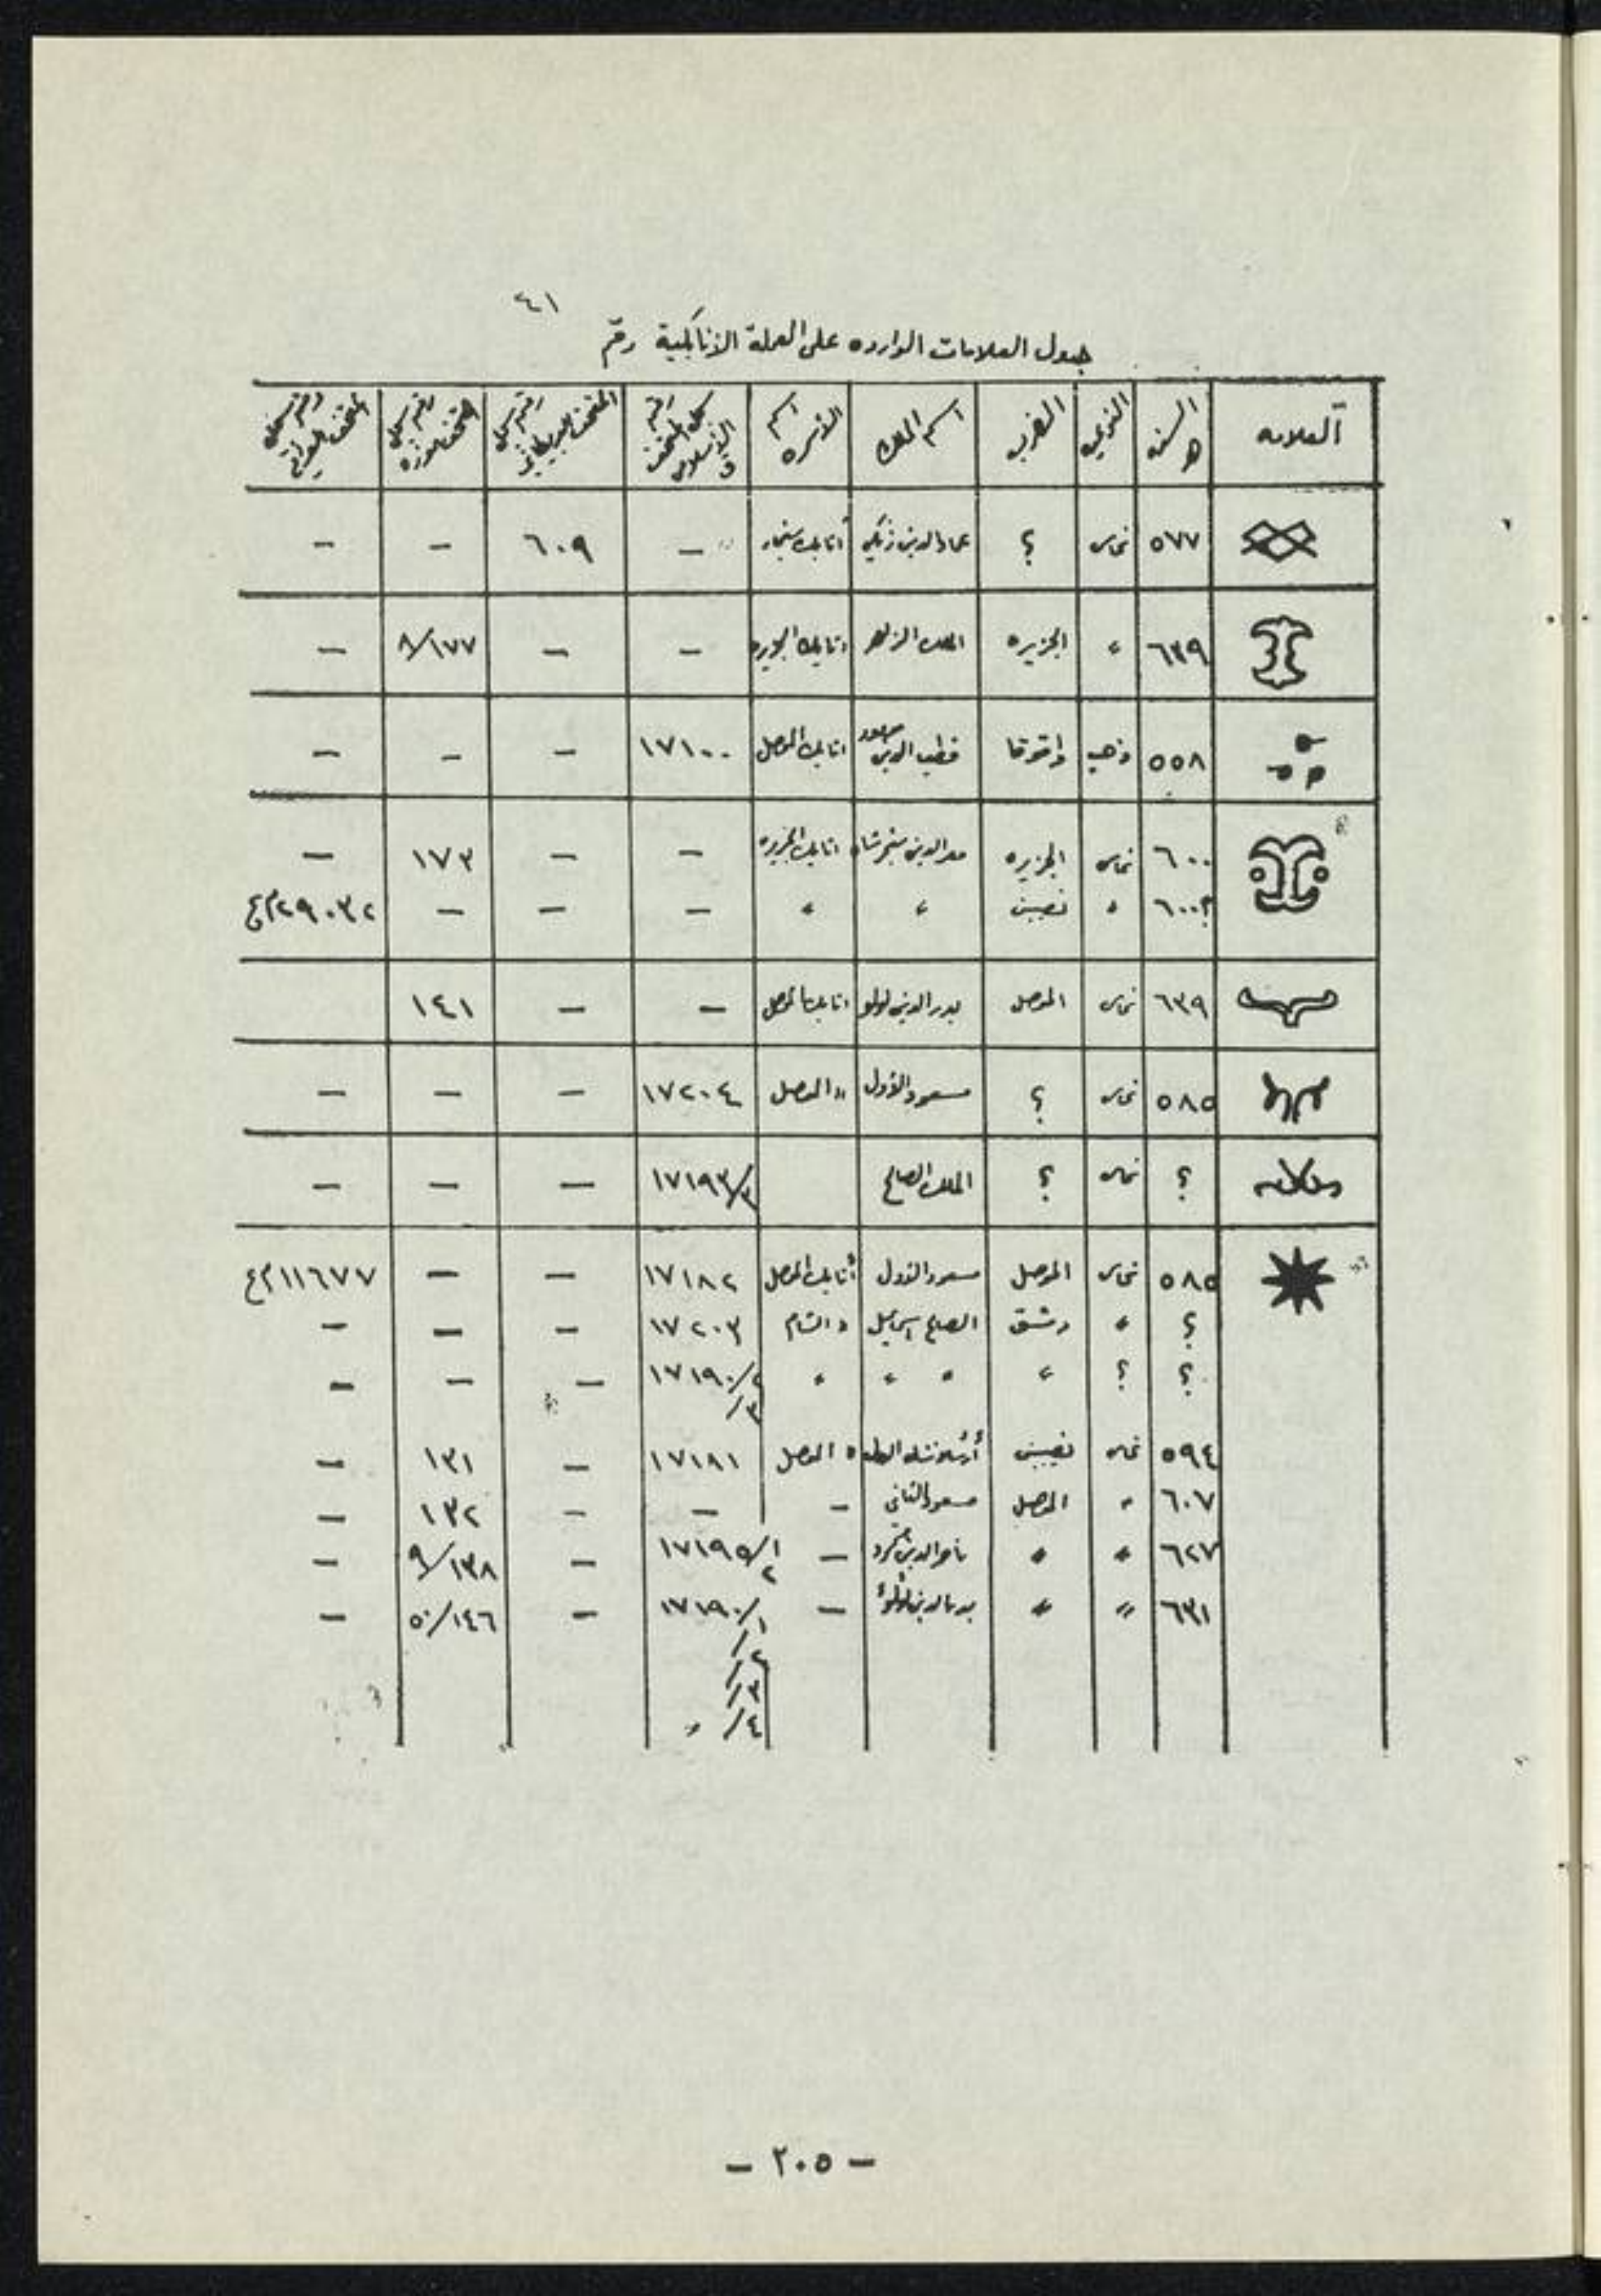 ٤١
جدول العلامات الوارده على العملة الاتابكية رقم
العلامه | السنه هـ | النوعيه | الضرب | اسم الملك | اسم الاسره | رقم سجل المتحف الاسلامي | رقم سجل المتحف البريطاني | رقم سجل | رقم سجل المتحف العراقي
٥٧٧ | نحاس | ؟ | عماد الدين زنكي | أتابك سنجار | — | ٦٠٩ | — | —
٦٣٩ | " | الجزيره | الملك الزاهر | اتابك الجزيره | — | — | ٨/١٧٧ | —
٥٥٨ | ذهب | داقوقا | قطب الدين مودود | اتابك الموصل | ١٧١٠٠ | — | — | —
٦٠٠ | نحاس | الجزيره | سنجر شاه | اتابك الجزيره | — | — | ١٧٣ | —
٦٠٠؟ | " | نصيبين | " | " | — | — | — | ٢٩٠٣٢ م ع
٦٣٩ | نحاس | الموصل | بدر الدين لولو | اتابك الموصل | — | — | ١٤١
٥٨٥ | نحاس | ؟ | مسعود الاول | " الموصل | ١٧٢٠٤ | — | — | —
؟ | نحاس | ؟ | الملك الصالح | | ١٧١٩٣/٣ | — | — | —
٥٨٥ | نحاس | الموصل | مسعود الاول | أتابك الموصل | ١٧١٨٢ | — | — | ١١٦٧٧ م ع
؟ | " | دمشق | الصالح اسماعيل | " الشام | ١٧٢٠٣ | — | — | —
؟ | ؟ | " | " " | " | ١٧١٩٠/٢ | — | — | —
/٣
٥٩٤ | نحاس | نصيبين | | " الموصل | ١٧١٨١ | — | ١٣١ | —
٦٠٧ | " | الموصل | مسعود الثاني | — | — | — | ١٣٢ | —
٦٢٧ | " | " | ناصر الدين محمود | — | ١٧١٩٥/١ | — | ٩/١٣٨ | —
٢
٦٣١ | " | " | بدر الدين لؤلؤ | — | ١٧١٩٠/١ | — | ٥٠/١٤٦ | —
/٢
/٣
/٤ "
— ٢٠٥ —